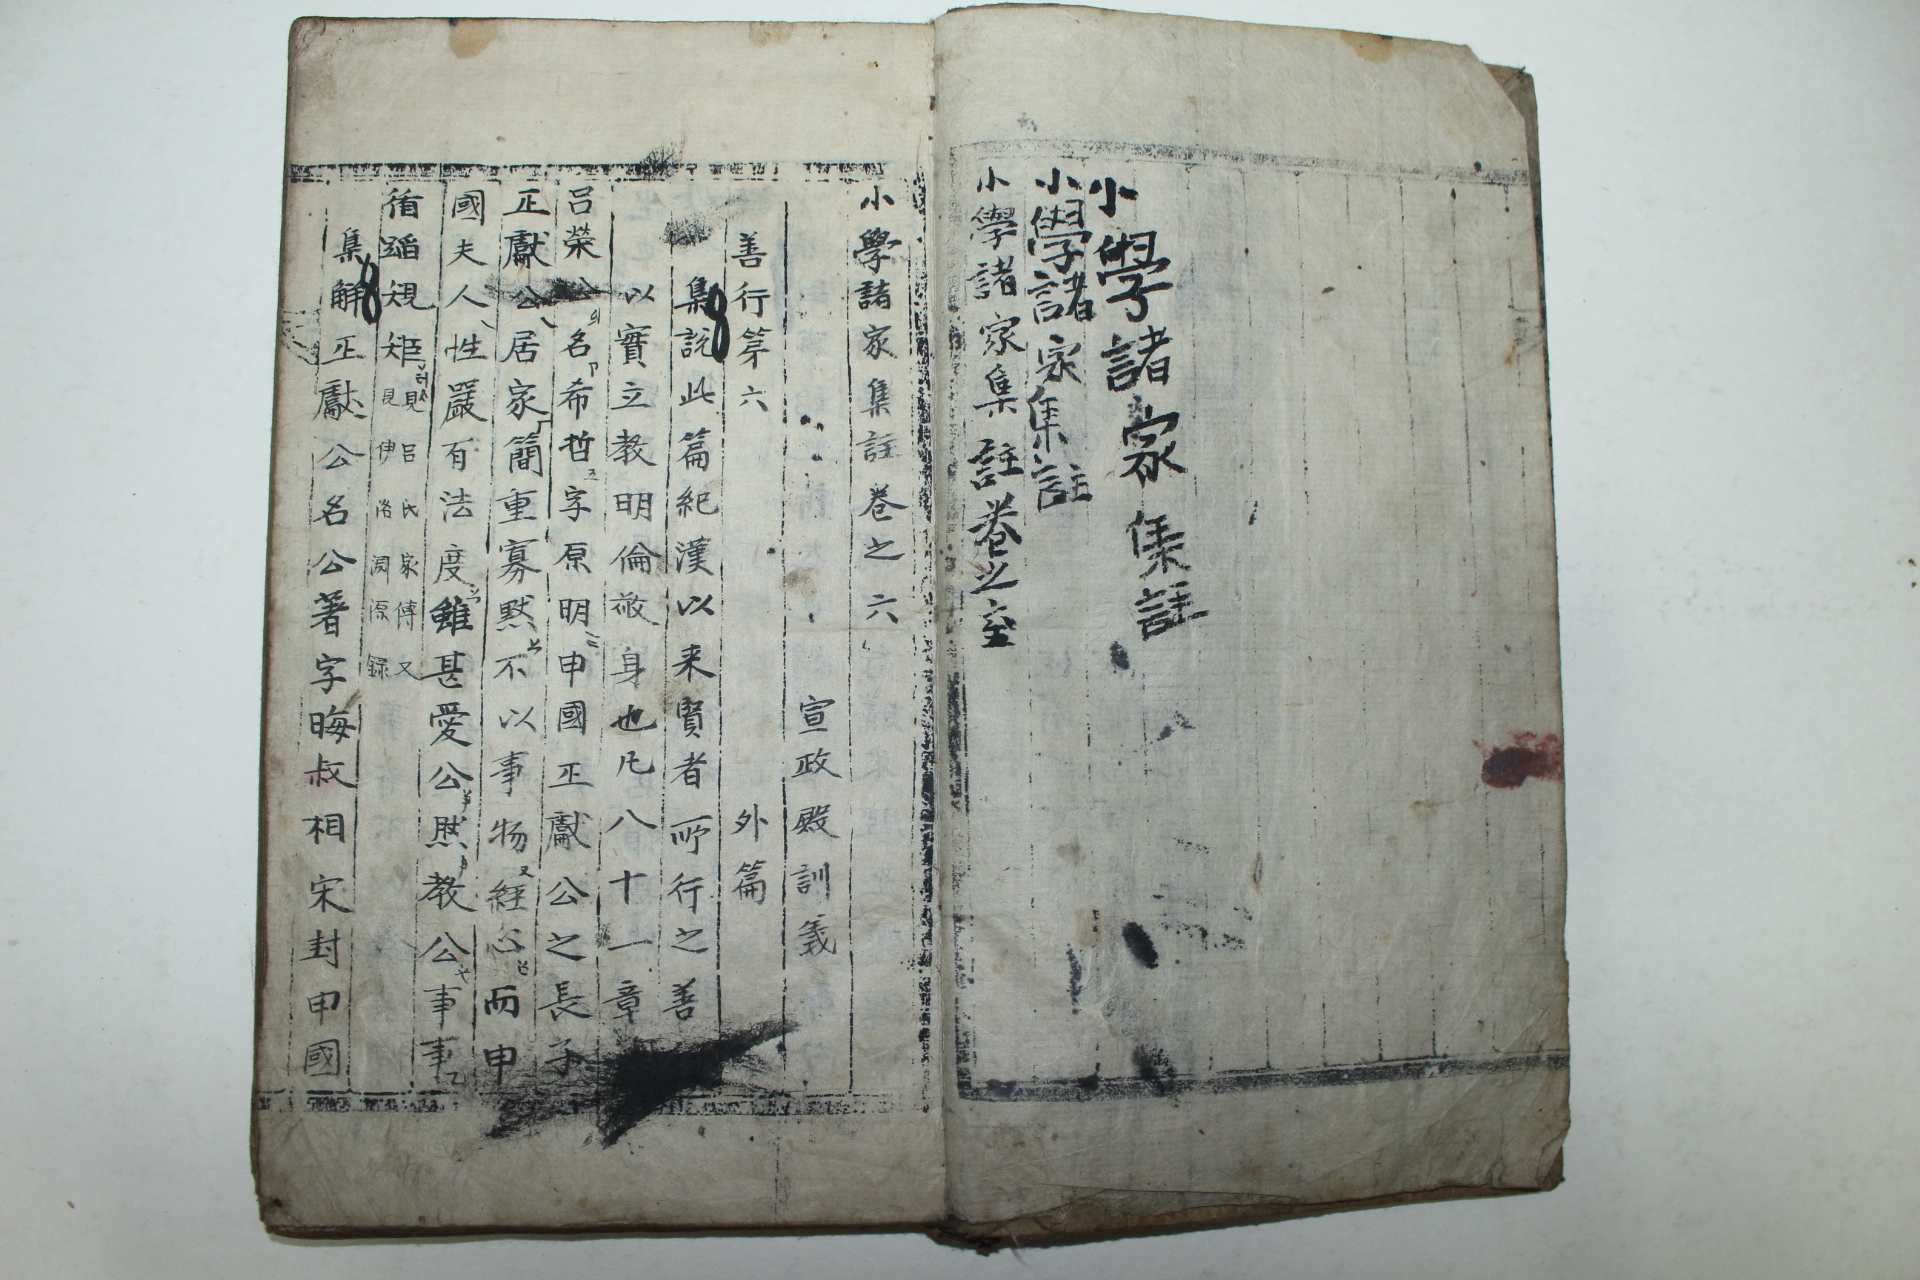 小學諸家集註
小學諸家集註
小學諸家集註卷之
小學諸家集註卷之六
宣政殿訓義
善行第六 外篇
集說此篇紀漢以来賢者所行之善
以實立教明倫敬身也凡八十一章
呂榮公名希哲字原明申國正獻公之長子
正獻公居家簡重寡默不以事物經心而申
國夫人性嚴有法度雖甚愛公然教公事事
循蹈規矩見呂氏家傳又見伊洛淵源録
集解正獻公名公著字晦叔相宋封申國